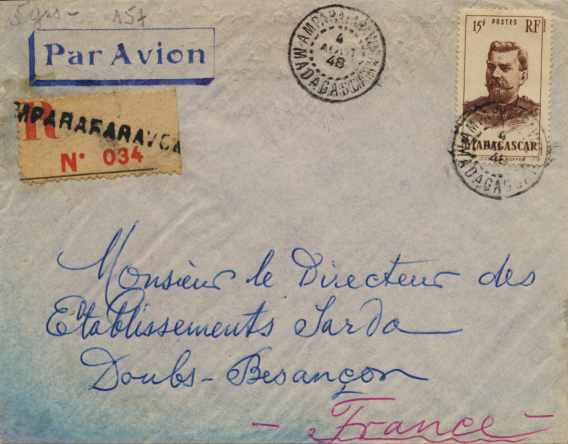 5 grs - A57
Par Avion
4
AOUT
48
MADAGASCAR
15F POSTES RF
MADAGASCAR
4
48
MADAGASCAR
R
MPARAFARAVOLA
N° 034
Monsieur le Directeur des
Etablissements Sarda
Doubs - Besançon
- France -